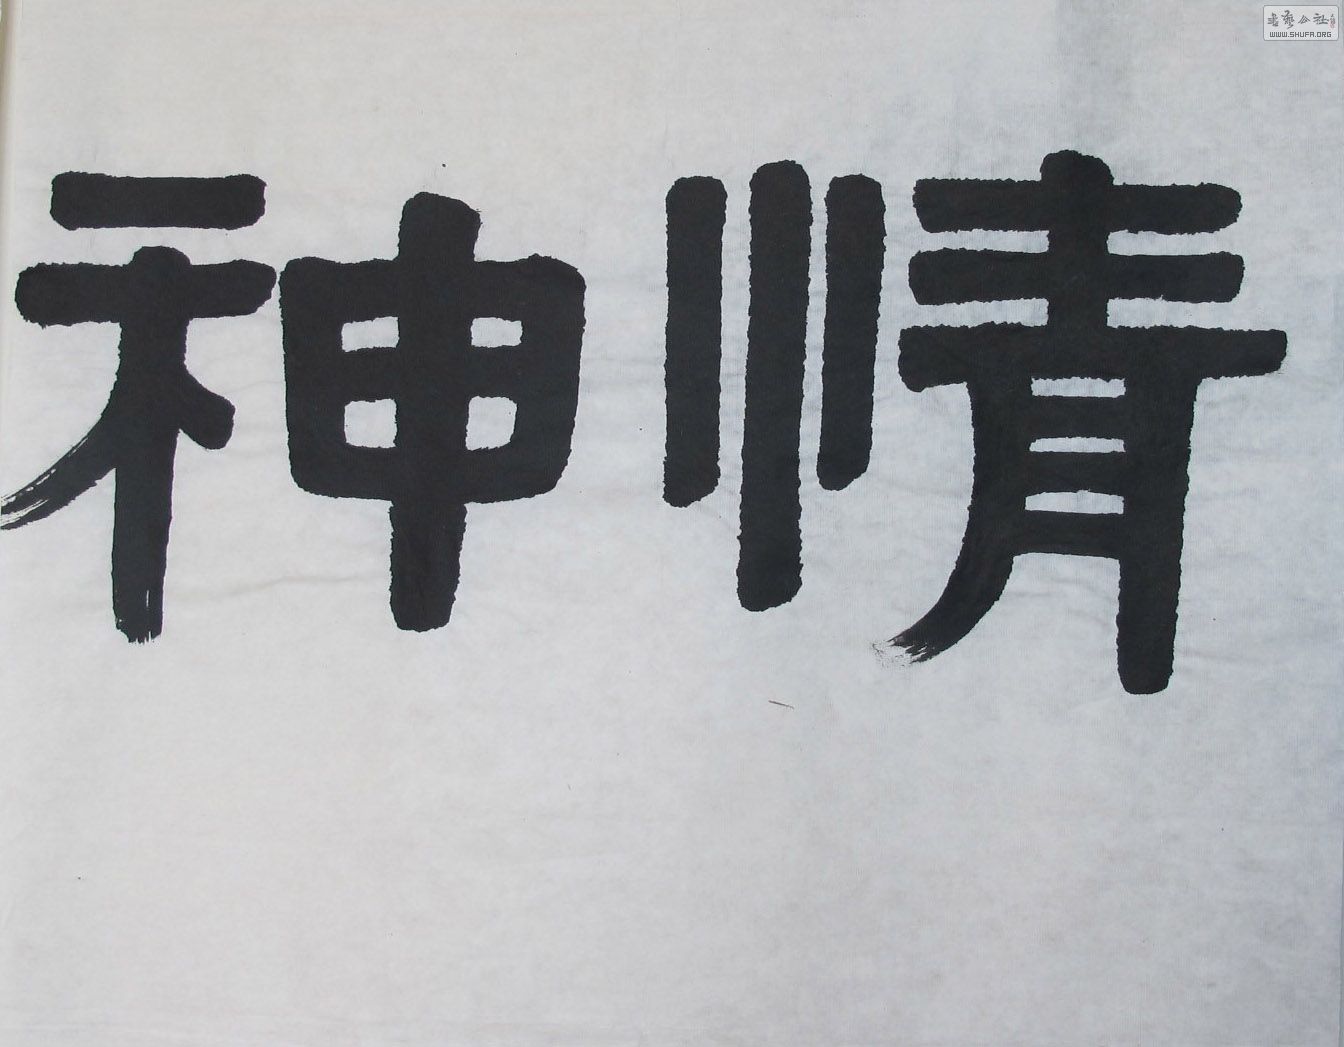 神情
书艺公社
WWW.SHUFA.ORG